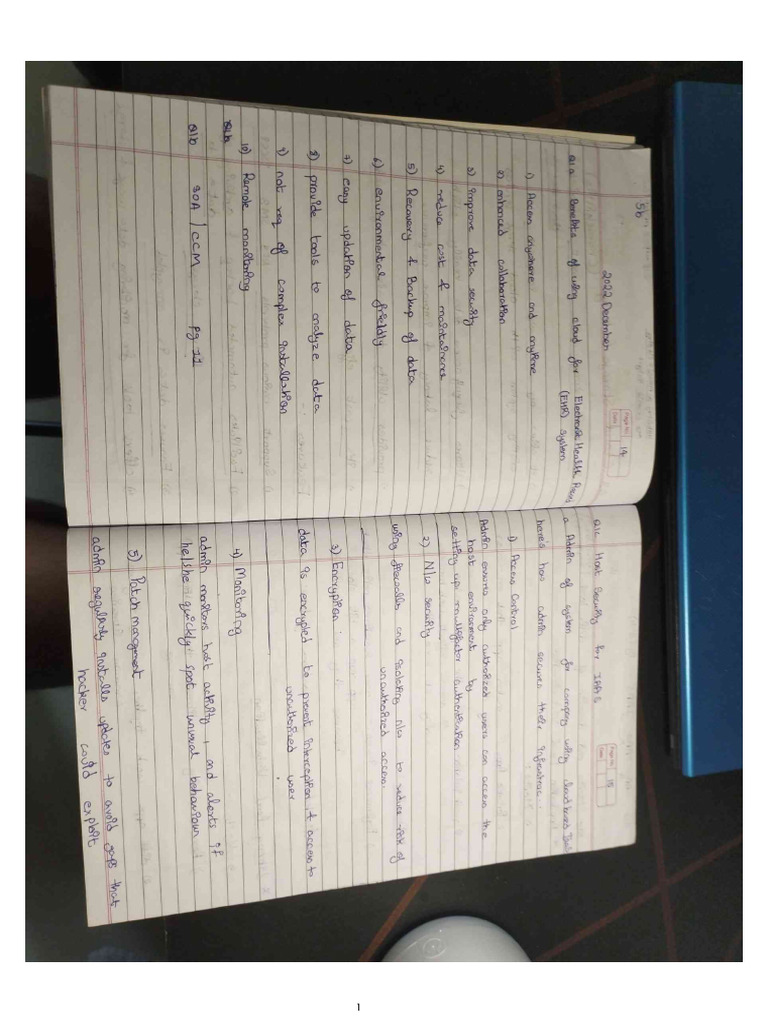 5b
Page No. 14
Date
2022 December
Q1a Benefits of using cloud for Electronic Health Record
(EHR) system
1) Access anywhere and anytime
2) enhanced collaboration
3) improve data security
4) reduce cost & maintainance
5) Recovery & Backup of data
6) environmental friendly
7) easy updation of data
8) provide tools to analyze data
9) not req of complex installation
10) Remote monitoring
Q1b
Q1b SOA / CCM Pg 11
Page No. 15
Date
Q1c Host Security for IAAS
a Admin of system for company using cloud based
here's how admin secures their infrastruc...
1) Access Control
Admin ensures only authorized users can access the
host environment by
setting up multifactor authentication
2) N/w security
using firewalls and isolating n/w to reduce risk of
unauthorized access.
3) Encryption
data is encrypted to prevent interception & access to
unauthorized user
4) Monitoring
admin monitors host activity, and alerts if
he/she quickly spot unusual behaviour
5) Patch management
admin regularly installs updates to avoid gaps that
hacker could exploit
1